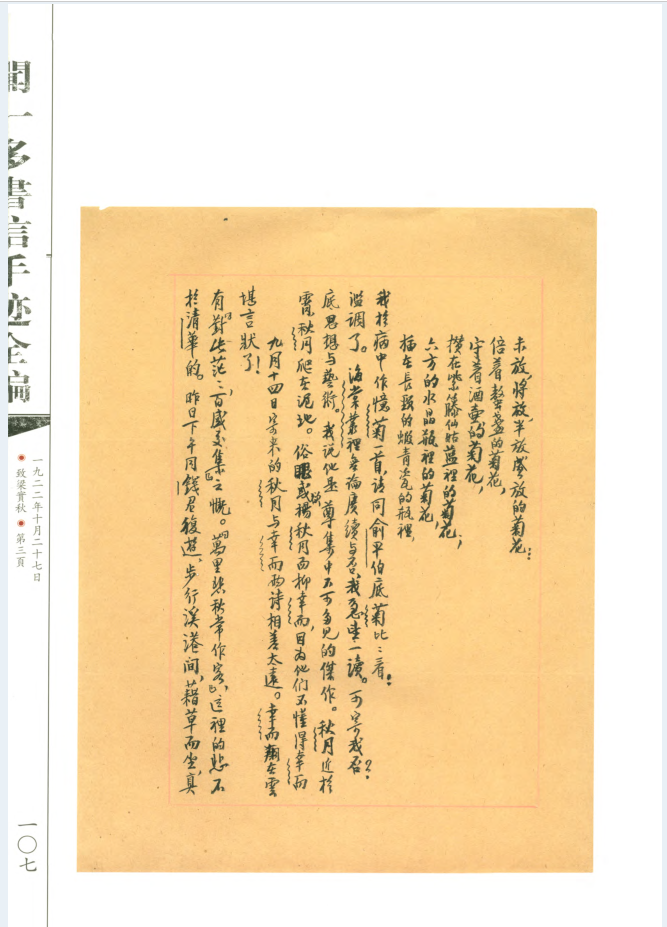 聞一多書信手迹全編
一九二二年十月二十七日
致梁實秋 第三頁
一〇七
於清華的。昨日下午同錢君復遊，步行溪港間，藉草而坐，真
有「對此茫茫，百感交集」之慨。「萬里悲秋常作客」，這裡的悲不
堪言狀了！
九月十四日寄來的秋月与幸而两詩相差太遠。幸而翱在雲
霄，秋月爬在泥地。俗眼或將揚秋月而抑幸而，因為他们不懂得幸而
底思想与藝術。我说他是尊集中不可多见的傑作。秋月近於
濫調了。海棠叢裡無論賡續与否，我急望一讀。可寄我否？
我於病中作憶菊一首，請同俞平伯底菊比比看：
插在長頸的蝦青瓷的瓶裡，
六方的水晶瓶裡的菊花，
攢在紫藤仙姑藍裡的菊花，
守着酒壺的菊花，
倍着螯盞的菊花，
未放，將放，半放，盛放的菊花：